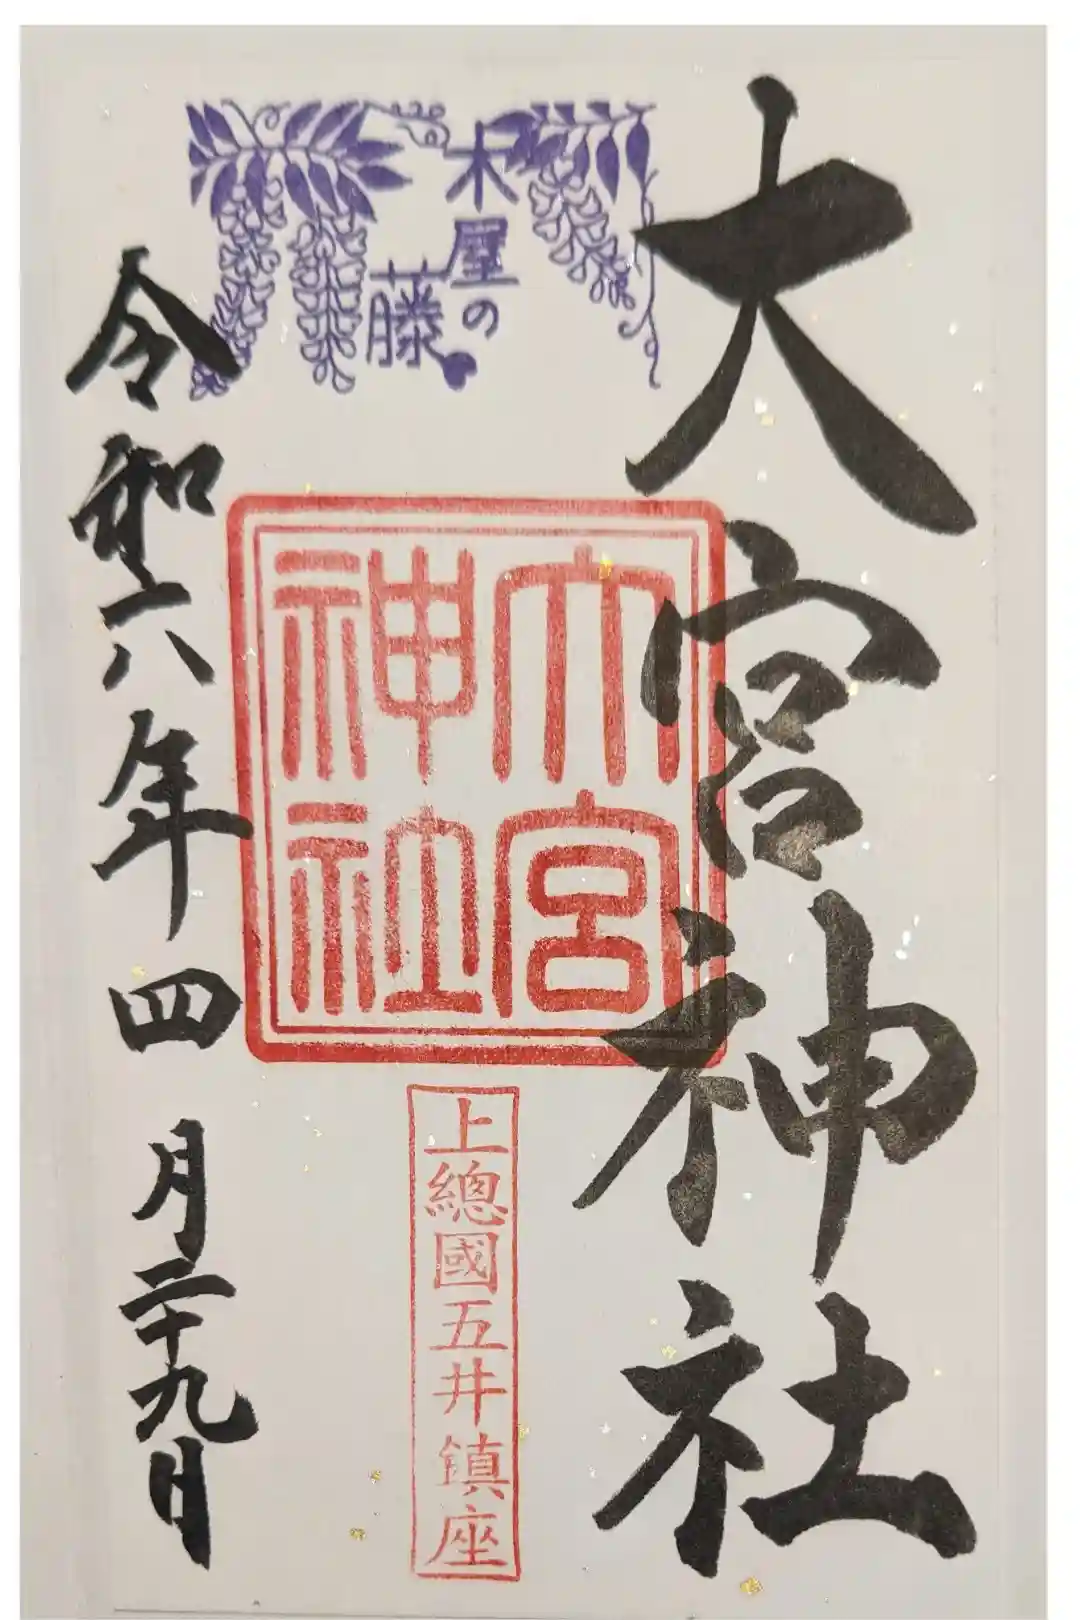 大宮神社
木屋の
藤
大宮
神社
上總國五井鎮座
令和六年四月二十九日